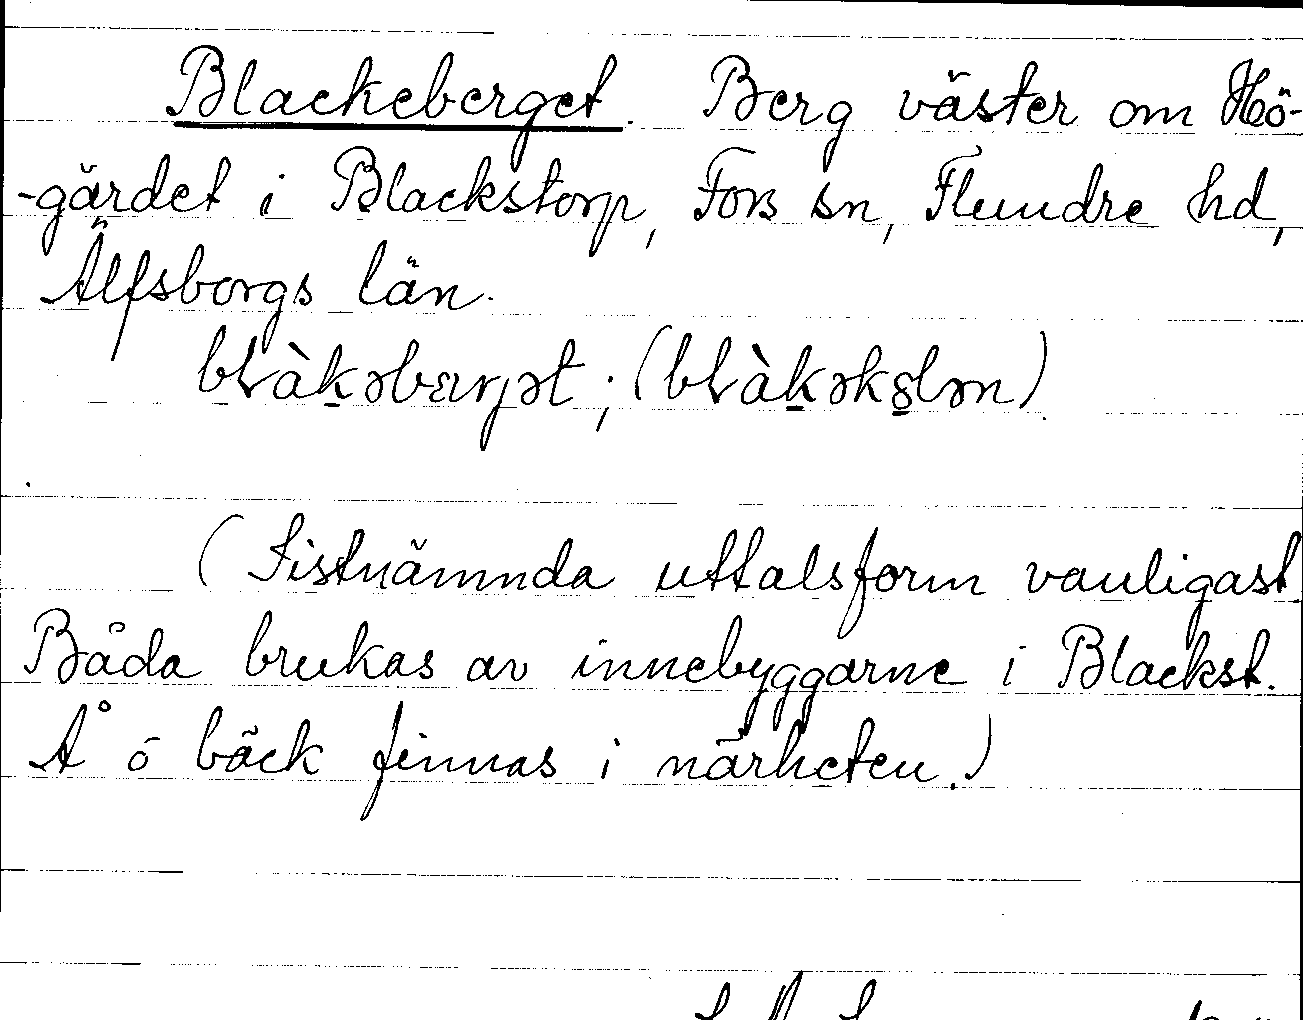 Blackeberget. Berg väster om Hö-
-gärdet i Blackstorp, Fors sn, Flundre hd,
Älfsborgs län.
(Sistnämnda uttalsform vanligast
Båda brukas av innebyggarne i Blackst.
Å ó bäck finnas i närheten.)